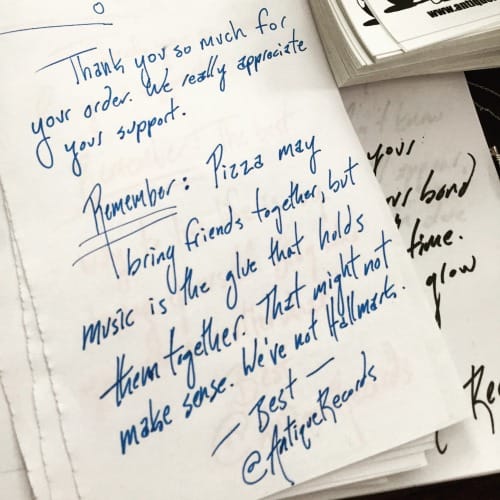 Thank you so much for
your order. We really appreciate
your support.
Remember: Pizza may
bring friends together, but
music is the glue that holds
them together. That might not
make sense. We've not Hallmark.
— Best —
@AntiqueRecords
your
bond
time.
glow